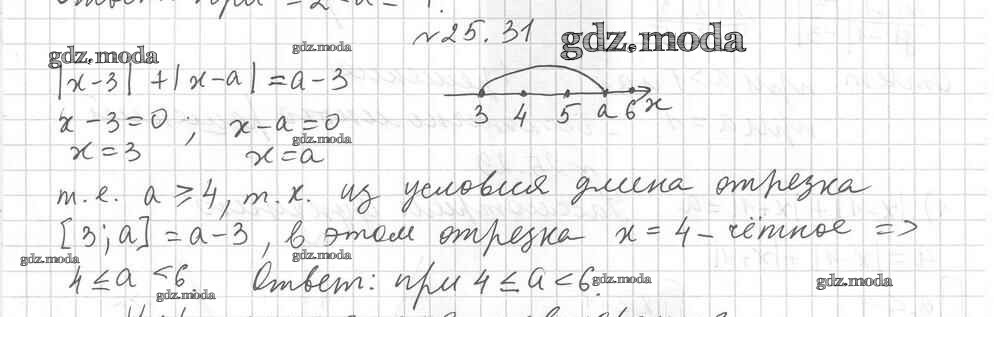 №25.31
gdz.moda
gdz.moda
gdz.moda
|x-3| + |x-a| = a-3
gdz.moda
x-3=0; x-a=0
3 4 5 a 6 x
gdz.moda
x=3 x=a
т.е. a ⩾ 4, т.к. из условия длина отрезка
[3; a] = a-3, в этом отрезка x = 4 - чётное =>
gdz.moda
gdz.moda
4 ≤ a < 6. Ответ: при 4 ≤ a < 6.
gdz.moda
gdz.moda
gdz.moda